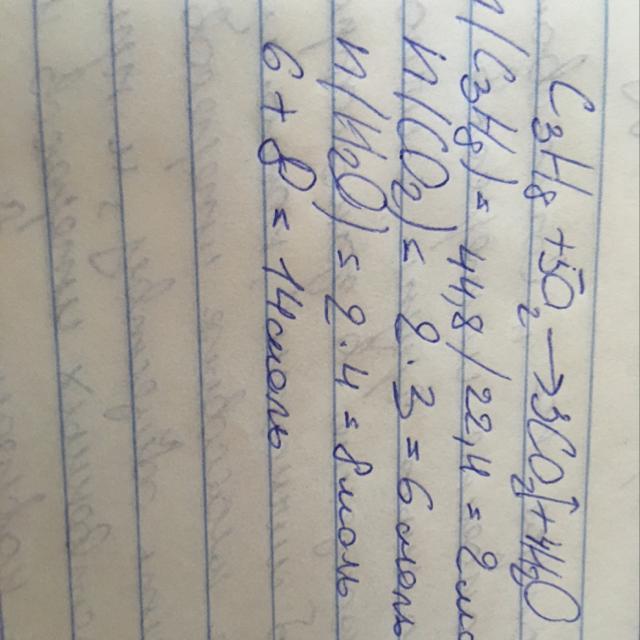 C3H8 + 5O2 → 3CO2↑ + 4H2O
n(C3H8) = 44,8/22,4 = 2 мо
n(CO2) = 2·3 = 6 моль
n(H2O) = 2·4 = 8 моль
6 + 8 = 14 моль